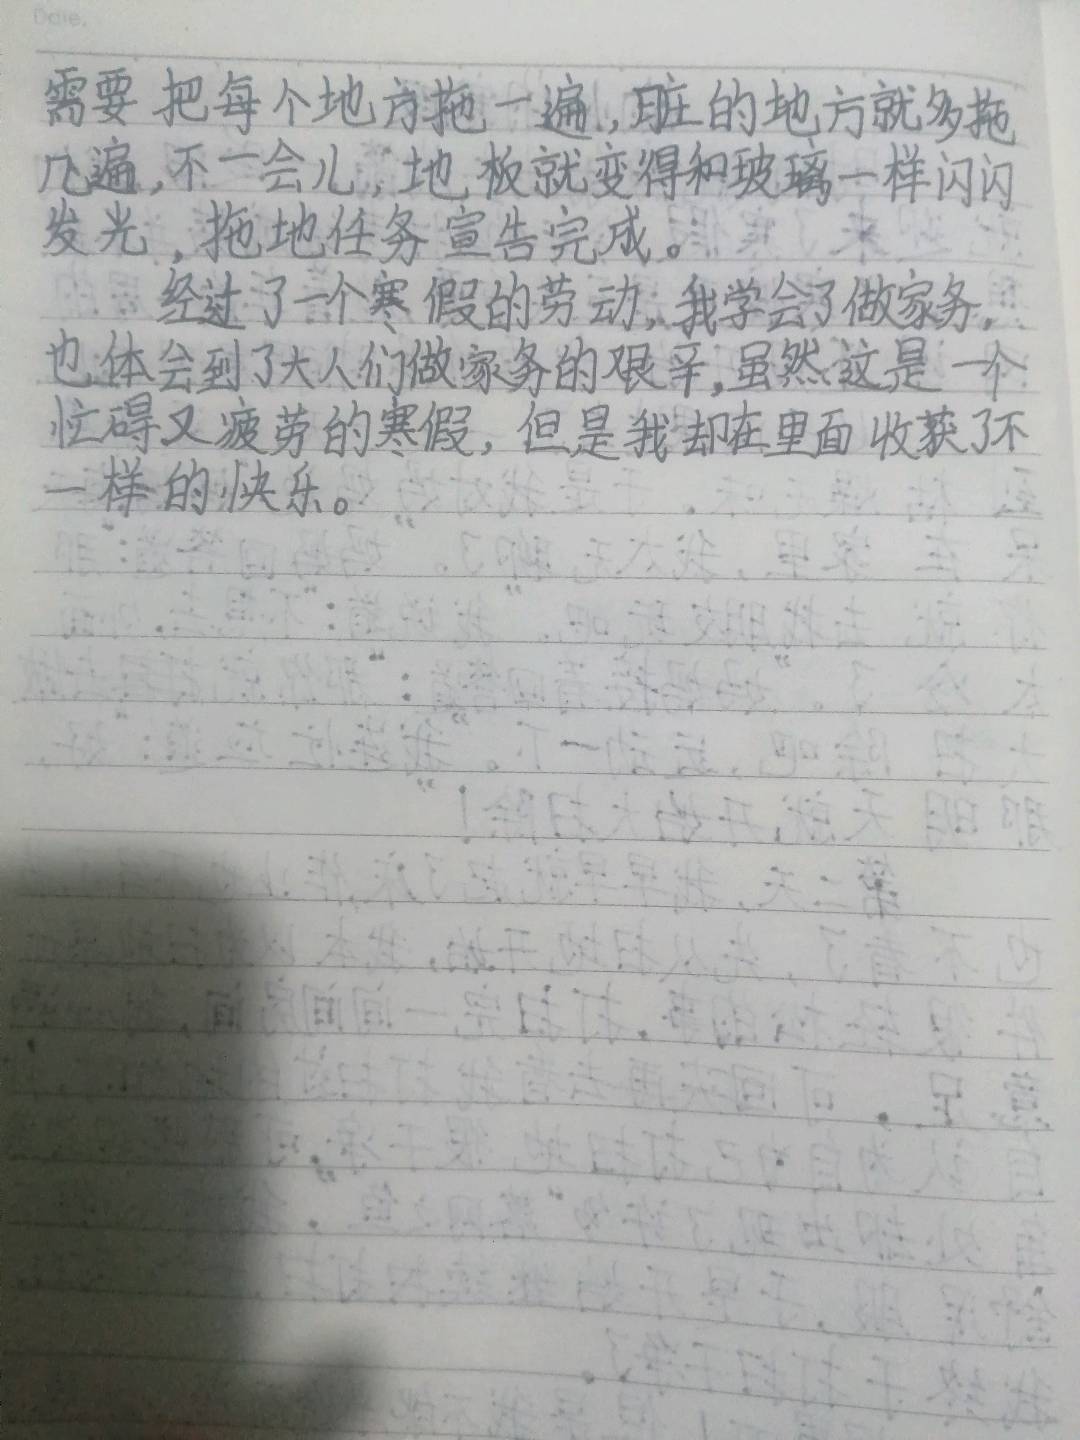 Date.
需要把每个地方拖一遍，脏的地方就多拖
几遍，不一会儿，地板就变得和玻璃一样闪闪
发光，拖地任务宣告完成。
经过了一个寒假的劳动，我学会了做家务，
也体会到了大人们做家务的艰辛，虽然这是一个
忙碍又疲劳的寒假，但是我却在里面收获了不
一样的快乐。